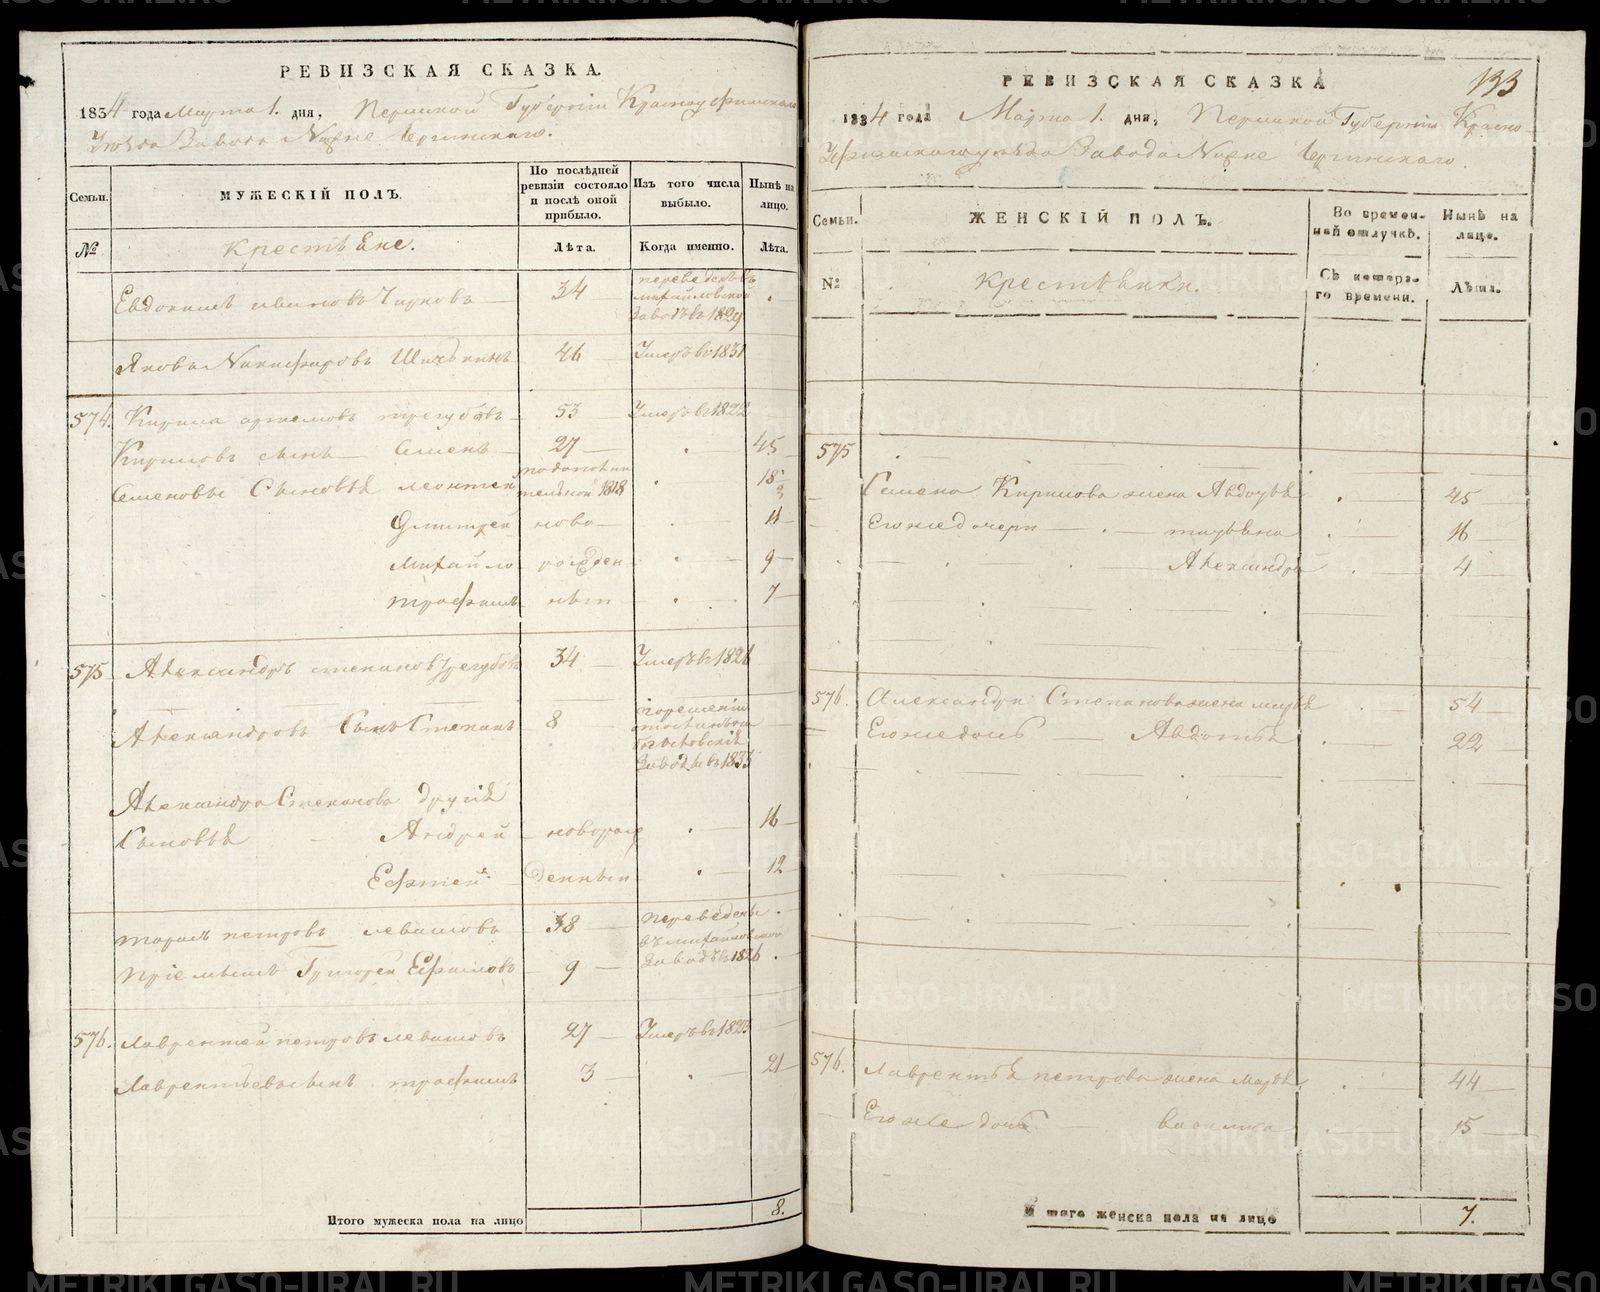 РЕВИЗСКАЯ СКАЗКА.
1834 года Марта 1. дня, Пермской Губернiи Красноуфимскаго
Уѣзда Завода Нижне Иргинскаго.
Семьи.
МУЖЕСКIЙ ПОЛЪ.
По послѣдней ревизiи состояло и послѣ оной прибыло.
Изъ того числа выбыло.
Нынѣ на лицо.
№
Крестьяне.
Лѣта.
Когда именно.
Лѣта.
Евдокимъ Ивановъ 34 переведенъ въ Михайловской Заводъ въ 1829
Яковъ Никифоровъ 46 Умеръ въ 1831
574. Кирила Артемовъ Трегубовъ 53 Умеръ въ 1822
Кириловъ сынъ Семенъ 27 45
Семеновы Сыновья Леонтей по дополнительной 1818 18
Дмитрей ново 11
Михайло рожден 9
Трофимъ ныи 7
575 Александръ Степановъ Трегубовъ 34 Умеръ въ 1826
Александровъ Сынъ Степанъ 8 Заводъ въ 1833
Александра Степанова другiя
Сыновья Андрей новорож 16
Ефтей денныи 12
Тарасъ Петровъ Левашовъ 38 переведены
въ Михайловской
Прiемышъ Григорей Ефимовъ 9 Заводъ въ 1826
576. Лаврентей Петровъ Левашовъ 27 Умеръ въ 1823
Лаврентьевъ сынъ Трофимъ 3 21
Итого мужеска пола на лицо 8.
133
РЕВИЗСКАЯ СКАЗКА
1834 года Марта 1. дня, Пермской Губернiи Красно
Уфимскаго уѣзда Завода Нижне Иргинскаго
Семьи.
ЖЕНСКIЙ ПОЛЪ.
Во временной отлучкѣ.
Нынѣ на лице.
№
Крестьянки.
Съ котораго времени.
Лѣта.
575
Семена Кирилова жена Авдотья 45
Его же дочери Татьяна 16
Александра 4
576. Александра Степанова жена Марья 54
Его же дочь Авдотья 22
576. Лаврентья Петрова жена Марья 44
Его же дочь Василиса 15
Итого женска пола на лицо 7.
METRIKI.GASO-URAL.RU